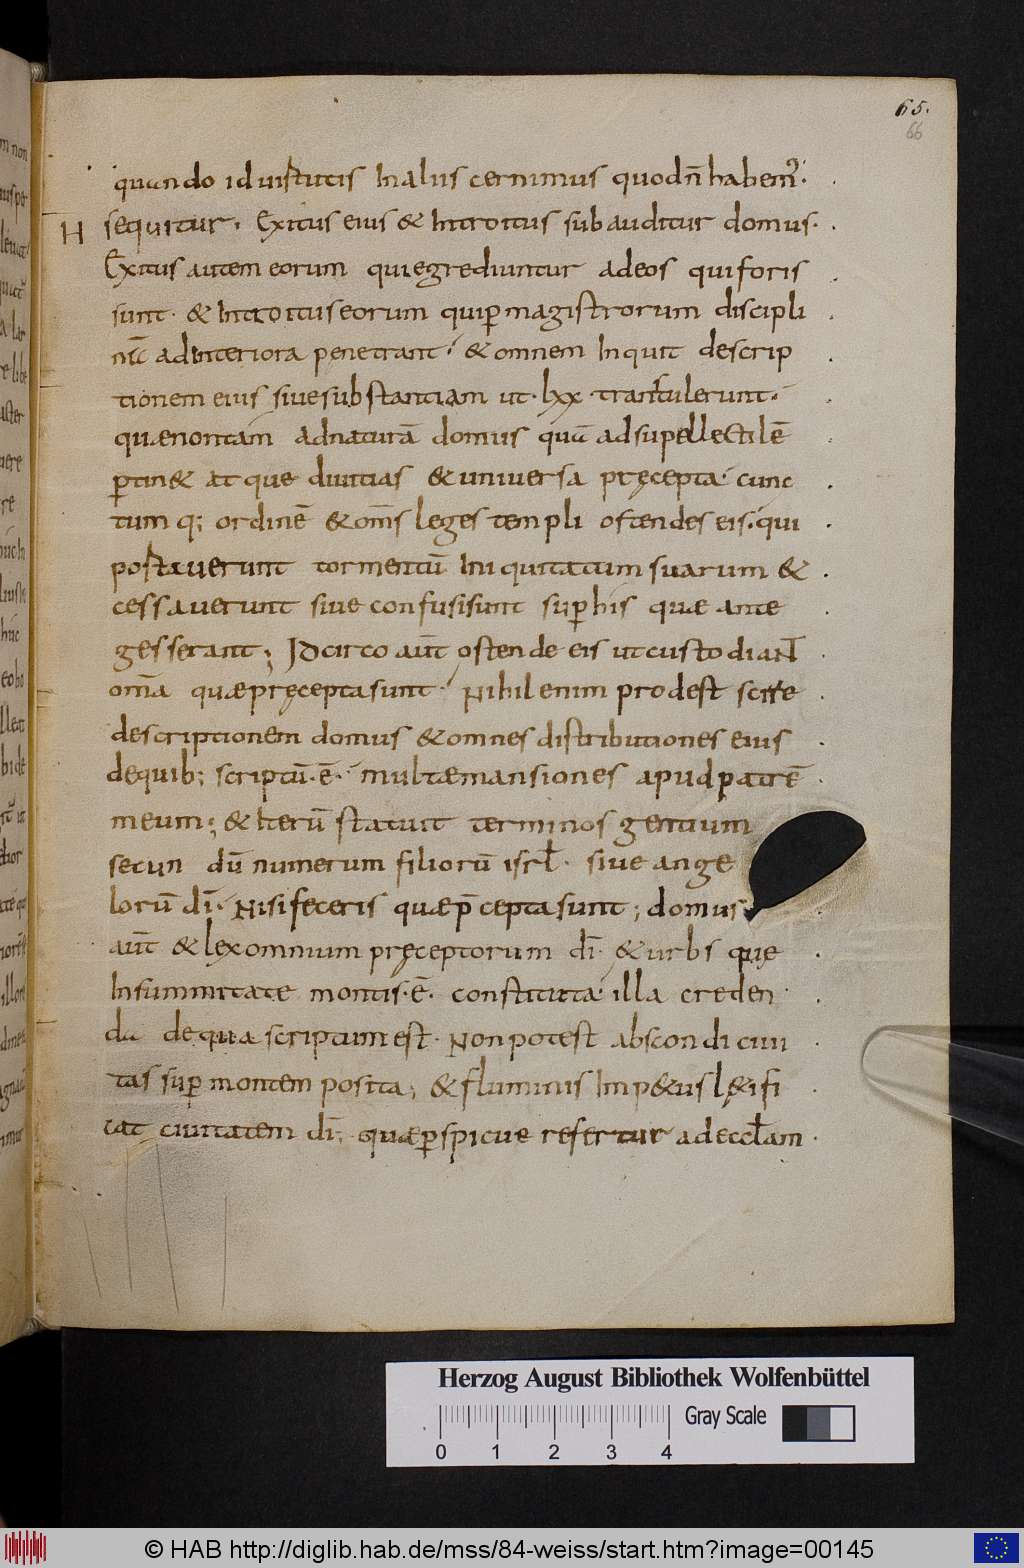 65.
66
quando id uistutis In aliis cernimus quodn̄ habem᷒.
H sequitur. Exitus eius & Introitus subauditur domus.
Exitus autem eorum qui egrediuntur adeos qui foris
sunt. & Introitus eorum qui ꝑ magistrorum discipli
adInteriora penetrant. & omnem Inquit descrip
tionem eius siue substantiam ut. lxx. transtulerunt.
quae non tam ad naturā domus quā ad supellectilē
ꝑtin& atque diuitias & uniuersa pręcepta cunc
tum q; ordinē & om̄s leges templi ostendes eis. qui
postauerunt tormentū Iniquitatum suarum &
cessauerunt siue confusi sunt suꝑ his quae ante
gesserant; Idcirco aūt ostende eis ut custodiaNT
om̄a quae pręcepta sunt. Nihil enim prodest scire
descriptionem domus & omnes distributiones eius
de quib; scriptū.ē. multae mansiones apud patrē
meum; & Iterū statuit terminos gentium
secun dū numerum filiorū isrl̄. siue ange
lorū dī. Nisi feceris quae p̄cepta sunt; domus
aūt & lex omnium pręceptorum dī. & urbs quę
In summitate montis.ē. constituta illa creden
da de qua scriptum est. Non potest abscondi ciui
tas suꝑ montem posita; & fluminis Imp&us l&ifi
cat ciuitatem dī; quae ꝑspicue refertur ad eccl̄am.
Herzog August Bibliothek Wolfenbüttel
Gray Scale
0 1 2 3 4
© HAB http://diglib.hab.de/mss/84-weiss/start.htm?image=00145